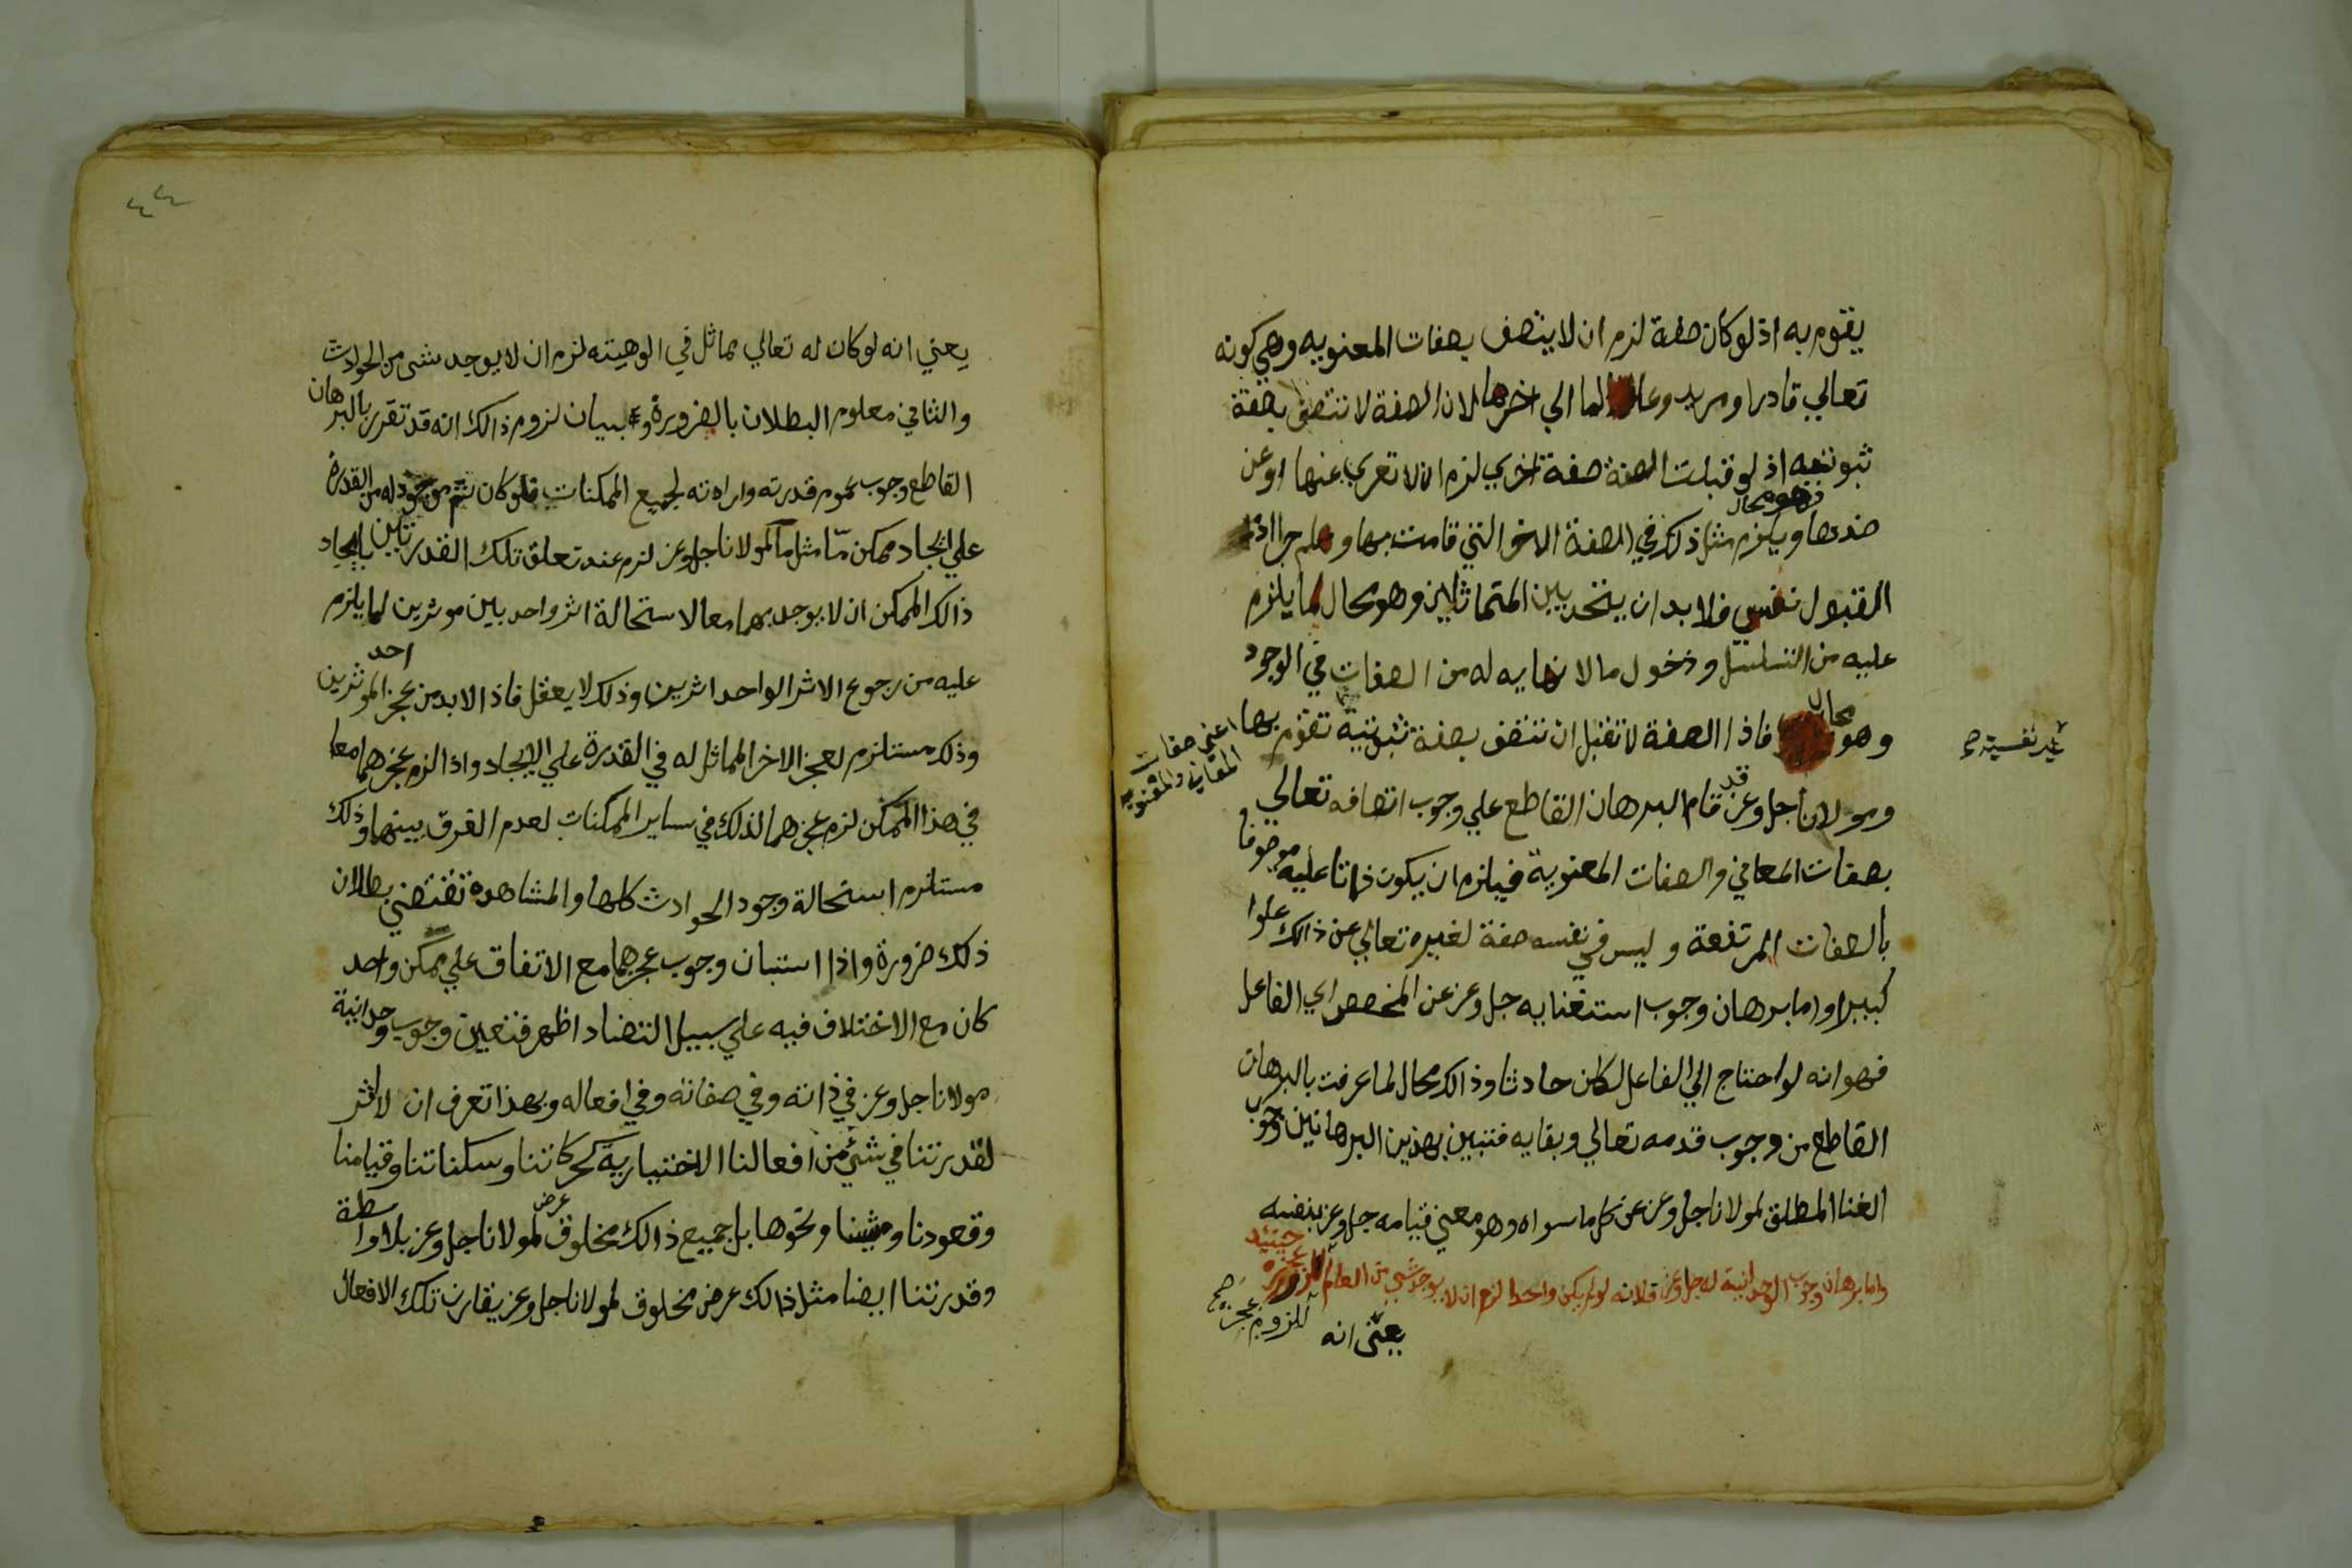 يقوم به اذ لو كان صفة لزم ان لا يتصف بصفات المعنويه وهي كونه
تعالي قادرا ومريد وعالما الي اخرها لان الصفة لا تتصف بصفة
ثبوتيه اذ لو قبلت الصفة صفة اخري لزم ان لا تعري عنها او عن
وهو محال
ضدها ويلزم مثل ذلك في الصفة الاخر التي قامت بها وهلم جرا اذ
القبول نفسي فلا بد ان يتحد بين المتماثلين وهو محال لما يلزم
عليه من التسلسل ودخول ما لا نهايه له من الصفات في الوجود
وهو محال فاذا الصفة لا تقبل ان تتصف بصفة ثبوتية تقوم بها
غير نفسية صح
اعني صفات
المعاني والمعنويه
ومولانا جل وعز قد قام البرهان القاطع علي وجوب اتصافه تعالي
بصفات المعاني والصفات المعنوية فيلزم ان يكون ذاتا عليه موصوفا
بالصفات المرتفعة وليس في نفسه صفة لغيره تعالي عن ذالك علوا
كبيرا واما برهان وجوب استغنايه جل وعز عن المخصص اي الفاعل
فهو انه لو احتاج الي الفاعل لكان حادثا وذالك محال لما عرفت بالبرهان
القاطع من وجوب قدمه تعالي وبقايه فتبين بهذين البرهانين وجوب
الغنا المطلق لمولانا جل وعز عن كل ما سواه وهو معني قيامه جل وعز بنفسه
واما برهان وجوب الوحدانية له جل وعز فلانه لو لم يكن واحدا لزم ان لا يوجد شي من العالم حينيذ
للزوم عجزه صح
يعني انه
٤٤
يعني انه لو كان له تعالي مماثل في الوهيته لزم ان لا يوجد شي من الحوادث
والثاني معلوم البطلان بالضرورة و بيان لزوم ذالك انه قد تقرر بالبرهان
القاطع وجوب عموم قدرته وارادته لجميع الممكنات فلو كان ثم موجود له من القدرة
علي ايجاد ممكن مّا مثل ما لمولانا جل وعز لزم عند تعلق تلك القدرتين بايجاد
ذالك الممكن ان لا يوجد بهما معا لاستحالة اثر واحد بين موثرين لما يلزم
عليه من رجوع الاثر الواحد اثرين وذلك لا يعقل فاذا لا بد من عجز احد الموثرين
وذلك مستلزم لعجز الاخر المماثل له في القدرة علي الايجاد واذا لزم عجزهما معا
في هذا الممكن لزم عجزهما لذلك في ساير الممكنات لعدم الفرق بينهما وذلك
مستلزم استحالة وجود الحوادث كلها والمشاهده تقتضي بطلان
ذلك ضرورة واذا استبان وجوب عجزهما مع الاتفاق علي ممكن واحد
كان مع الاختلاف فيه علي سبيل التضاد اظهر فتعين وجوب وحدانية
مولانا جل وعز في ذاته وفي صفاته وفي افعاله وبهذا تعرف ان لا اثر
لقدرتنا في شي من افعالنا الاختيارية كحركاتنا وسكناتنا وقيامنا
وقعودنا ومشينا ونحوها بل جميع ذالك مخلوق عرض لمولانا جل وعز بلا واسطة
وقدرتنا ايضا مثل ذالك عرض مخلوق لمولانا جل وعز يقارن تلك الافعال